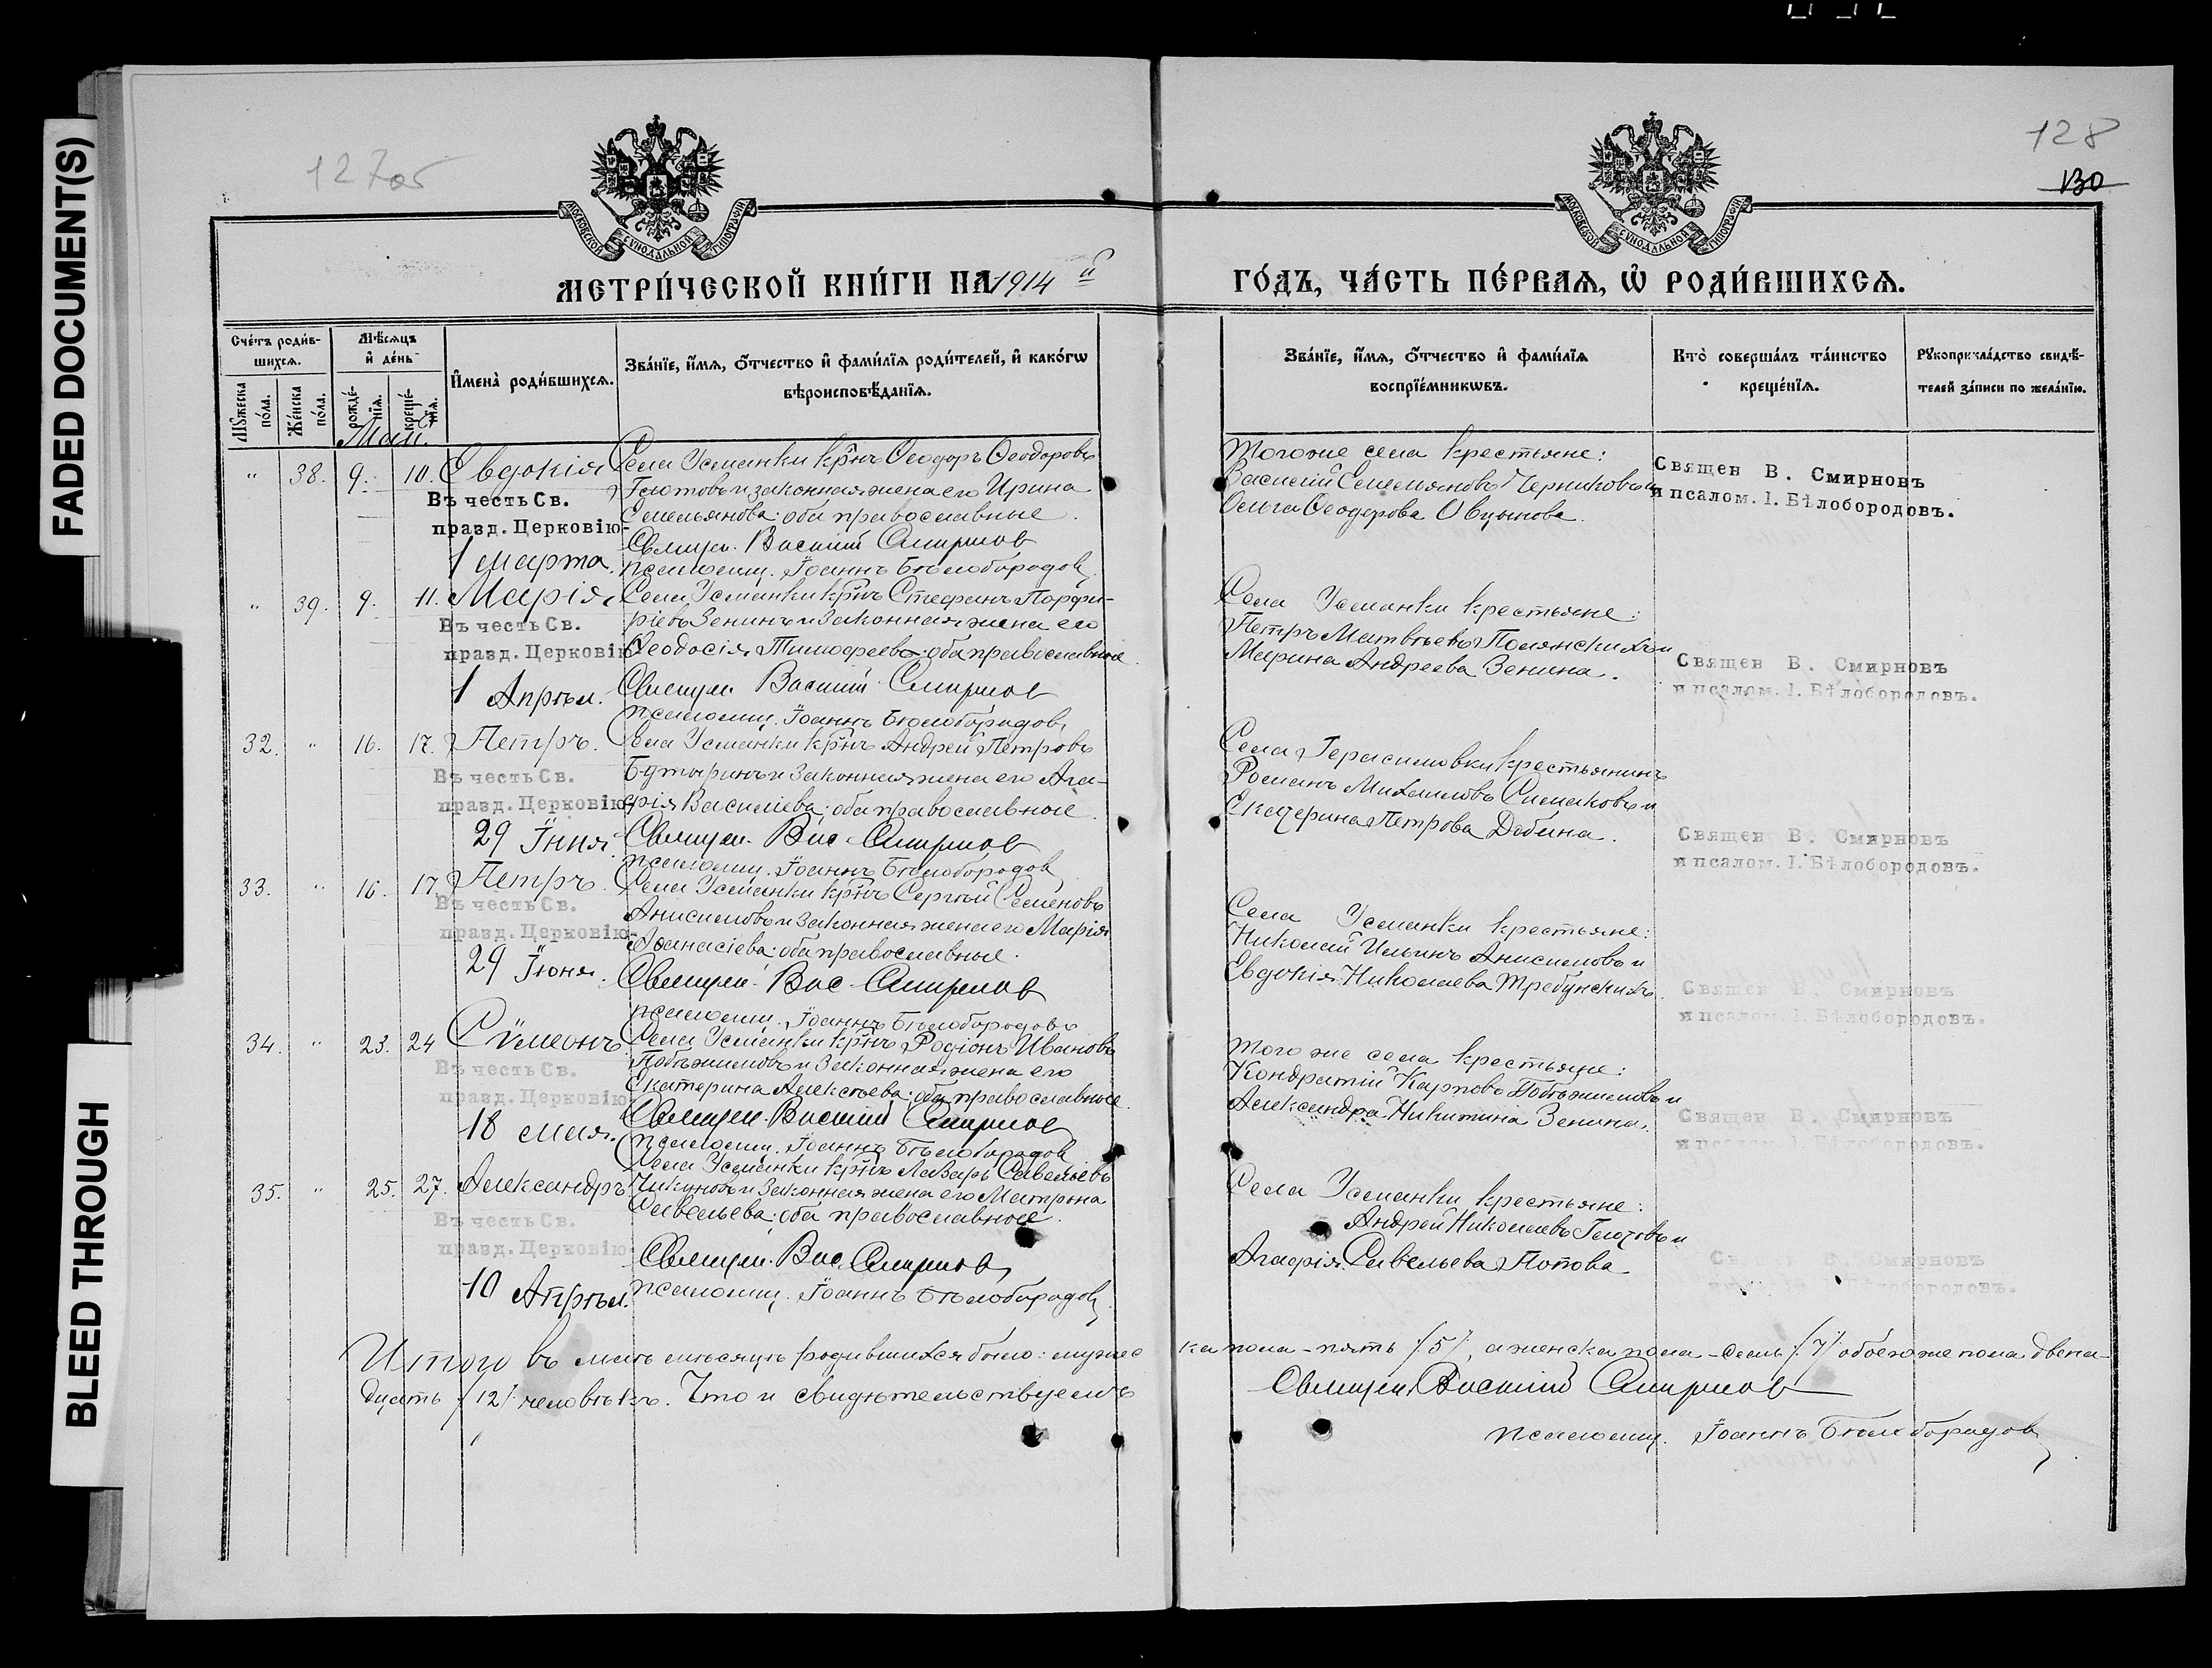 FADED DOCUMENT(S)
BLEED THROUGH
127об
128
130
МОСКОВСКОЙ СѴНОДАЛЬНОЙ ТИПОГРАФІИ
МОСКОВСКОЙ СѴНОДАЛЬНОЙ ТИПОГРАФІИ
МЕТРИ́ЧЕСКОЙ КНИ́ГИ НА 1914 й
ГО́ДЪ, ЧА́СТЬ ПЕ́РВАѦ, Ѡ҆ РОДИ́ВШИХСѦ.
Сче́тъ роди́в-
шихся.
Мꙋ́жеска по́ла.
Же́нска по́ла.
Мѣ́сяцъ
и҆ де́нь
рожде́-
нїя.
креще́-
нїя.
И҆мена̀ роди́вшихся.
Зва́нїе, и҆́мя, ѻ҆́тчество и҆ фами́лїя роди́телей, и҆ како́гѡ
вѣроисповѣ́данїя.
Зва́нїе, и҆́мя, ѻ҆́тчество и҆ фами́лїя
воспрїе́мникѡвъ.
Кто̀ соверша́лъ та́инство
креще́нїя.
Рꙋкоприкла́дство свидѣ́-
телей за́писи по жела́нїю.
Маи.
" 38. 9. 10. Евдокія
Въ честь Св.
празд. Церковію-
1 марта.
Села Усманки кр-нъ Ѳеодоръ Ѳеодоровъ
Глотовъ и законная жена его Ирина
Емельянова: оба православные.
Священ. Василій Смирнов
псаломщ. Іоаннъ Бѣлобородов
Того же села крестьяне:
Василій Емельяновъ Черниковъ и
Ольга Ѳеодорова Овцынова.
Священ В. Смирновъ
и псалом. І. Бѣлобородовъ.
" 39. 9. 11. Марія
Въ честь Св.
празд. Церковію
1 Апрѣля.
Села Усманки кр-нъ Стефанъ Порфи-
ріевъ Зенинъ и законная жена его
Ѳеодосія Тимофеева: оба православные.
Священ. Василій Смирнов
псаломщ. Іоаннъ Бѣлобородов
Села Усманки крестьяне:
Петръ Матвѣевъ Полянскихъ и
Марина Андреева Зенина.
Священ В. Смирновъ
и псалом. І. Бѣлобородовъ.
32. " 16. 17. Петръ.
Въ честь Св.
празд. Церковію-
29 Іюня.
Села Усманки кр-нъ Андрей Петровъ
Бутыринъ и законная жена его Ага-
фія Василіева: оба православные.
Священ. Вас. Смирнов
псаломщ. Іоаннъ Бѣлобородов
Села Герасимовки крестьянинъ
Романъ Михаиловъ Симаковъ и
Екатерина Петрова Добина.
Священ В. Смирновъ
и псалом. І. Бѣлобородовъ.
33. " 16. 17. Петръ.
Въ честь Св.
празд. Церковію-
29 Іюня.
Села Усманки кр-нъ Сергѣй Семеновъ
Анисимовъ и законная жена его Марія
Аѳанасіева: оба православные.
Священ. Вас. Смирнов
псаломщ. Іоаннъ Бѣлобородовъ
Села Усманки крестьяне:
Николай Ильинъ Анисимовъ и
Евдокія Николаева Требунскихъ.
Священ В. Смирновъ
и псалом. І. Бѣлобородовъ.
34. " 23. 24 Сѵмеонъ
Въ честь Св.
празд. Церковію
18 мая.
Села Усманки кр-нъ Родіонъ Ивановъ
Побѣжимовъ и законная жена его
Екатерина Алексѣева: оба православные.
Священ. Василій Смирнов
псаломщ. Іоаннъ Бѣлобородов
Того же села крестьяне:
Кондратій Карповъ Побѣжимовъ и
Александра Никитина Зенина.
Священ В. Смирновъ
и псалом. І. Бѣлобородовъ.
35. " 25. 27. Александръ
Въ честь Св.
празд. Церковію
10 Апрѣля.
Села Усманки кр-нъ Лазарь Савельевъ
Чикуновъ и законная жена его Матрона
Савельева: оба православные.
Священ. Вас. Смирнов
псаломщ. Іоаннъ Бѣлобородов
Села Усманки крестьяне:
Андрей Николаевъ Глотовъ и
Агафія Савельева Попова
Священ В. Смирновъ
Бѣлобородовъ.
Итого въ маѣ мѣсяцѣ родившихся было: мужес
ка пола - пять /5/, а женска пола - семь /7/ обоего же пола двена-
дцать /12/ человѣкъ. Что и свидѣтельствуемъ
Священ. Василій Смирнов
псаломщ. Іоаннъ Бѣлобородов